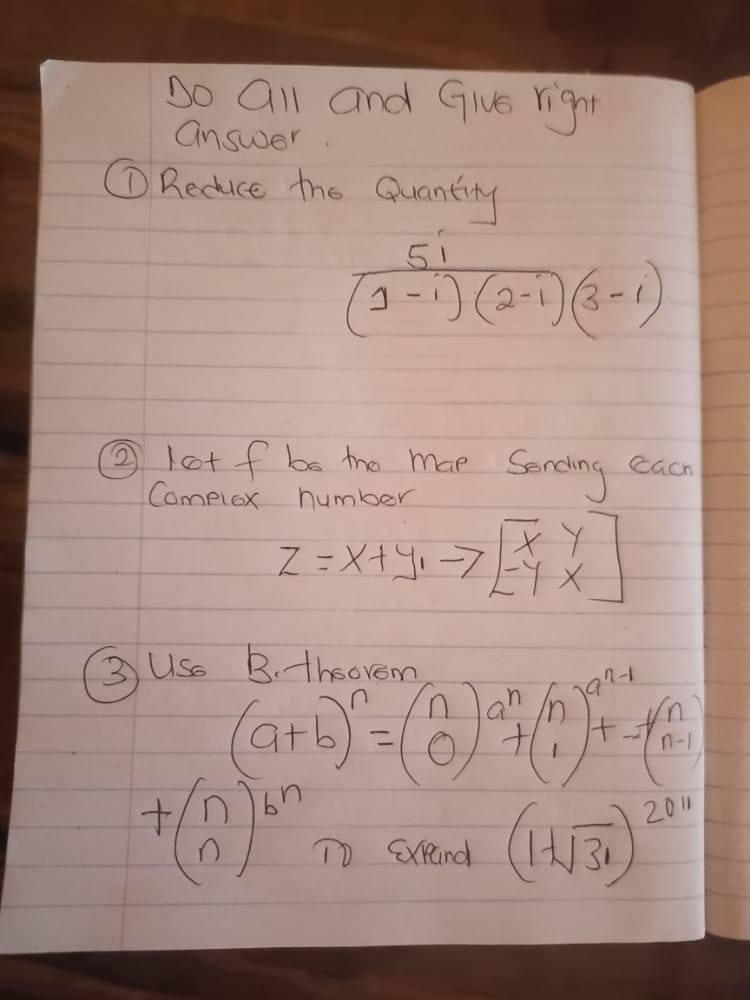 Do all and Give right
answer.
① Reduce the Quantity
5i
(1-i)(2-i)(3-i)
② let f be the map Sending each
Complex number
Z = X+yi → [X Y
-Y X]
③ Use B. theorem
(a+b)^n = (n 0) a^n + (n 1) a^n-1 + - + (n n-1)
+ (n n) b^n To Expand (1+√3i)^2011